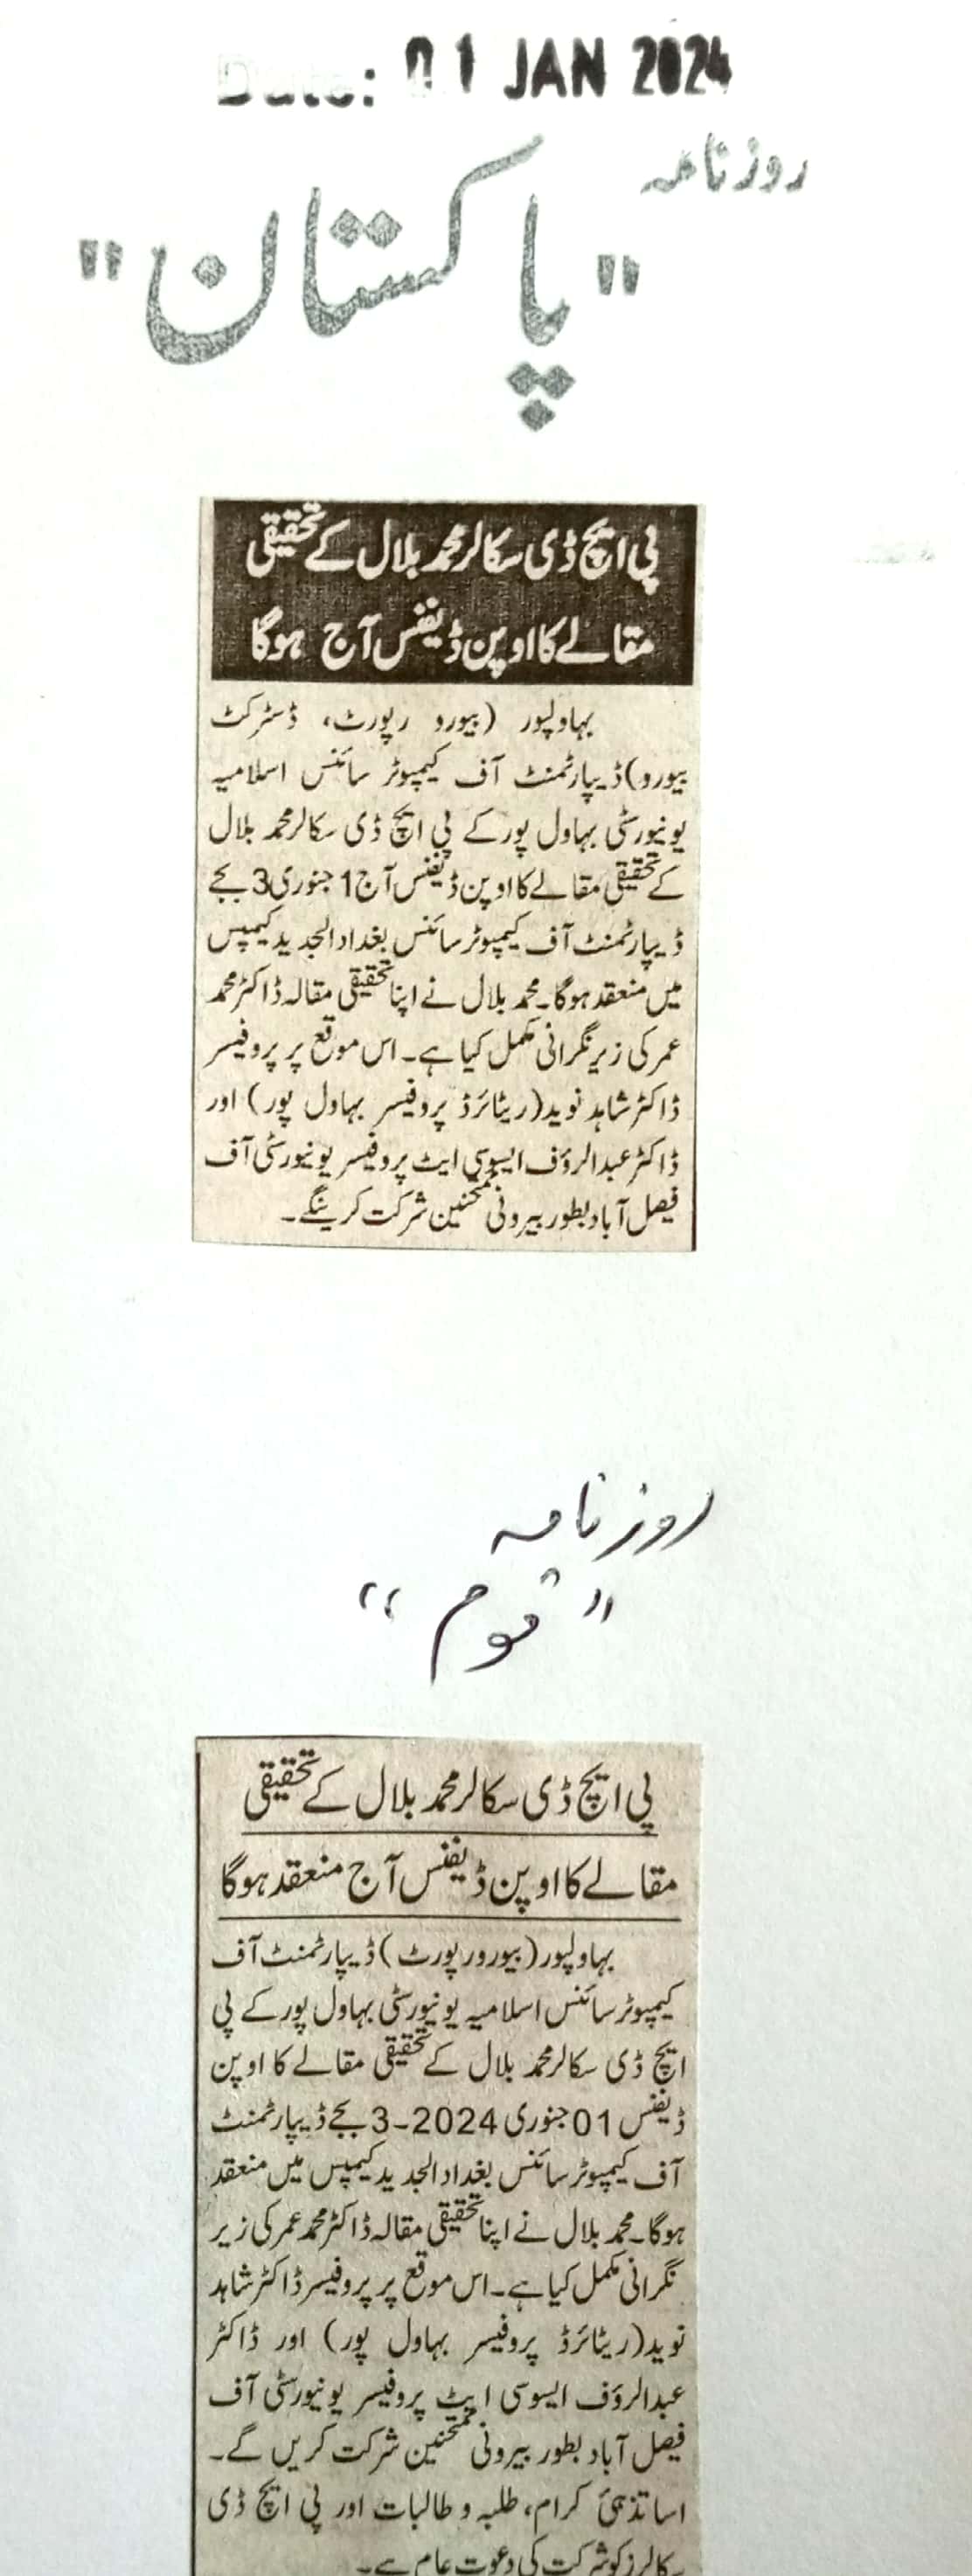 Date: 01 JAN 2024
روزنامہ
"پاکستان"
پی ایچ ڈی سکالر محمد بلال کے تحقیقی
مقالے کا اوپن ڈیفنس آج ہوگا
بہاولپور (بیورو رپورٹ، ڈسٹرکٹ
بیورو) ڈیپارٹمنٹ آف کیمپوٹر سائنس اسلامیہ
یونیورسٹی بہاول پور کے پی ایچ ڈی سکالر محمد بلال
کے تحقیقی مقالے کا اوپن ڈیفنس آج 1 جنوری 3 بجے
ڈیپارٹمنٹ آف کیمپوٹر سائنس بغداد الجدید کیمپس
میں منعقد ہوگا۔ محمد بلال نے اپنا تحقیقی مقالہ ڈاکٹر محمد
عمر کی زیر نگرانی مکمل کیا ہے۔ اس موقع پر پروفیسر
ڈاکٹر شاہد نوید (ریٹائرڈ پروفیسر بہاول پور) اور
ڈاکٹر عبدالرؤف ایسوسی ایٹ پروفیسر یونیورسٹی آف
فیصل آباد بطور بیرونی ممتحنین شرکت کرینگے۔
روزنامہ
"قوم"
پی ایچ ڈی سکالر محمد بلال کے تحقیقی
مقالے کا اوپن ڈیفنس آج منعقد ہوگا
بہاولپور (بیورو رپورٹ) ڈیپارٹمنٹ آف
کیمپوٹر سائنس اسلامیہ یونیورسٹی بہاول پور کے پی
ایچ ڈی سکالر محمد بلال کے تحقیقی مقالے کا اوپن
ڈیفنس 01 جنوری 2024-3 بجے ڈیپارٹمنٹ
آف کیمپوٹر سائنس بغداد الجدید کیمپس میں منعقد
ہوگا۔ محمد بلال نے اپنا تحقیقی مقالہ ڈاکٹر محمد عمر کی زیر
نگرانی مکمل کیا ہے۔ اس موقع پر پروفیسر ڈاکٹر شاہد
نوید (ریٹائرڈ پروفیسر بہاول پور) اور ڈاکٹر
عبدالرؤف ایسوسی ایٹ پروفیسر یونیورسٹی آف
فیصل آباد بطور بیرونی ممتحنین شرکت کریں گے۔
اساتذہئ کرام، طلبہ و طالبات اور پی ایچ ڈی
سکالرز کو شرکت کی دعوت عام ہے۔